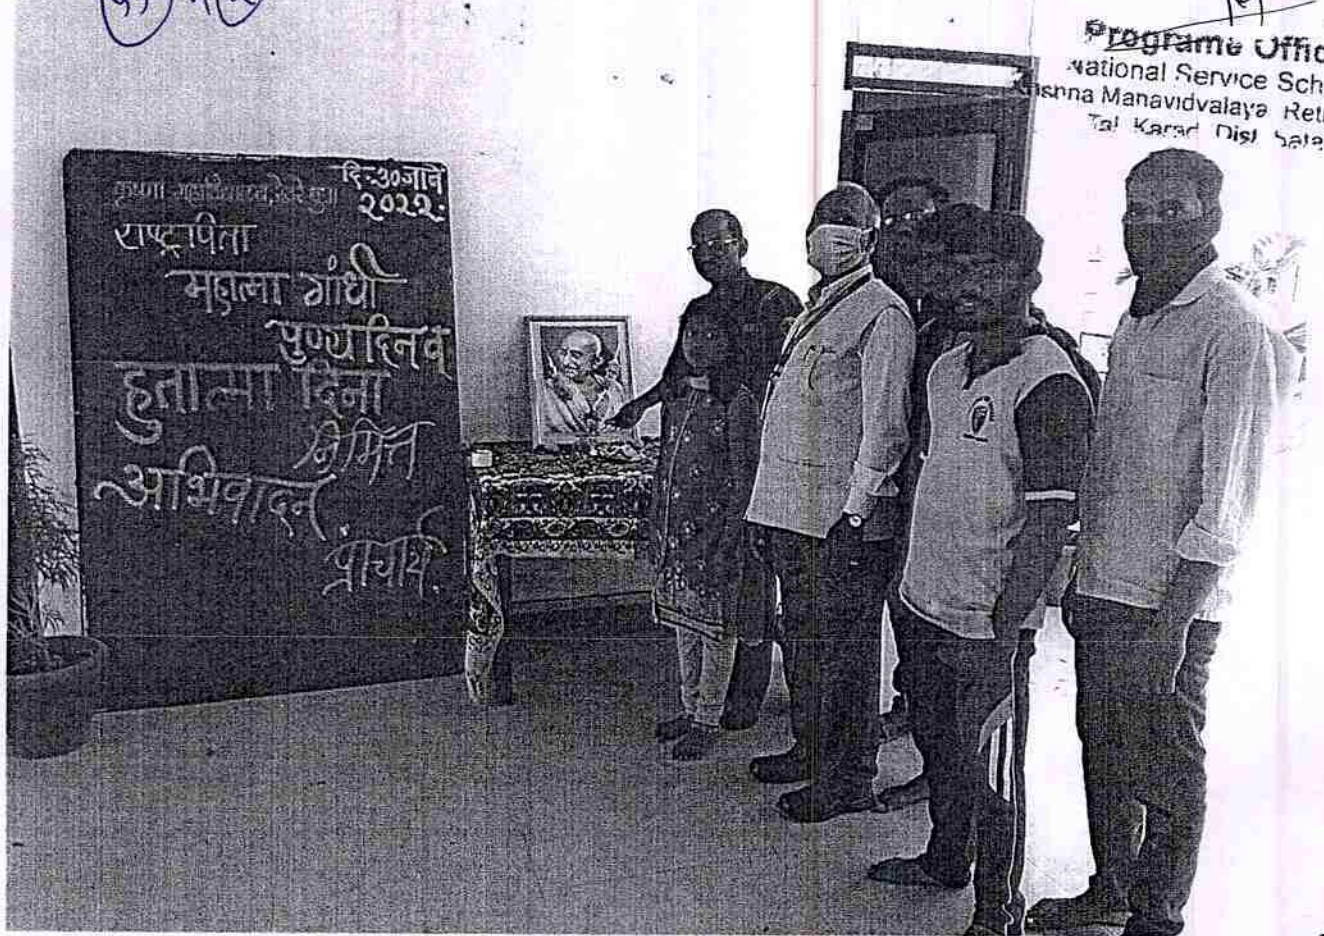 Programe Offic
National Service Sch
Krishna Manavidvalaya Ret
Tal Karad Dist Sata
दि-३०जाने
२०२२.
कृष्णा महाविद्यालय, रेठरे बुा
राष्ट्रपिता
महात्मा गांधी
पुण्यदिन व
हुतात्मा दिना
निमित्त
अभिवादन
प्राचार्य.